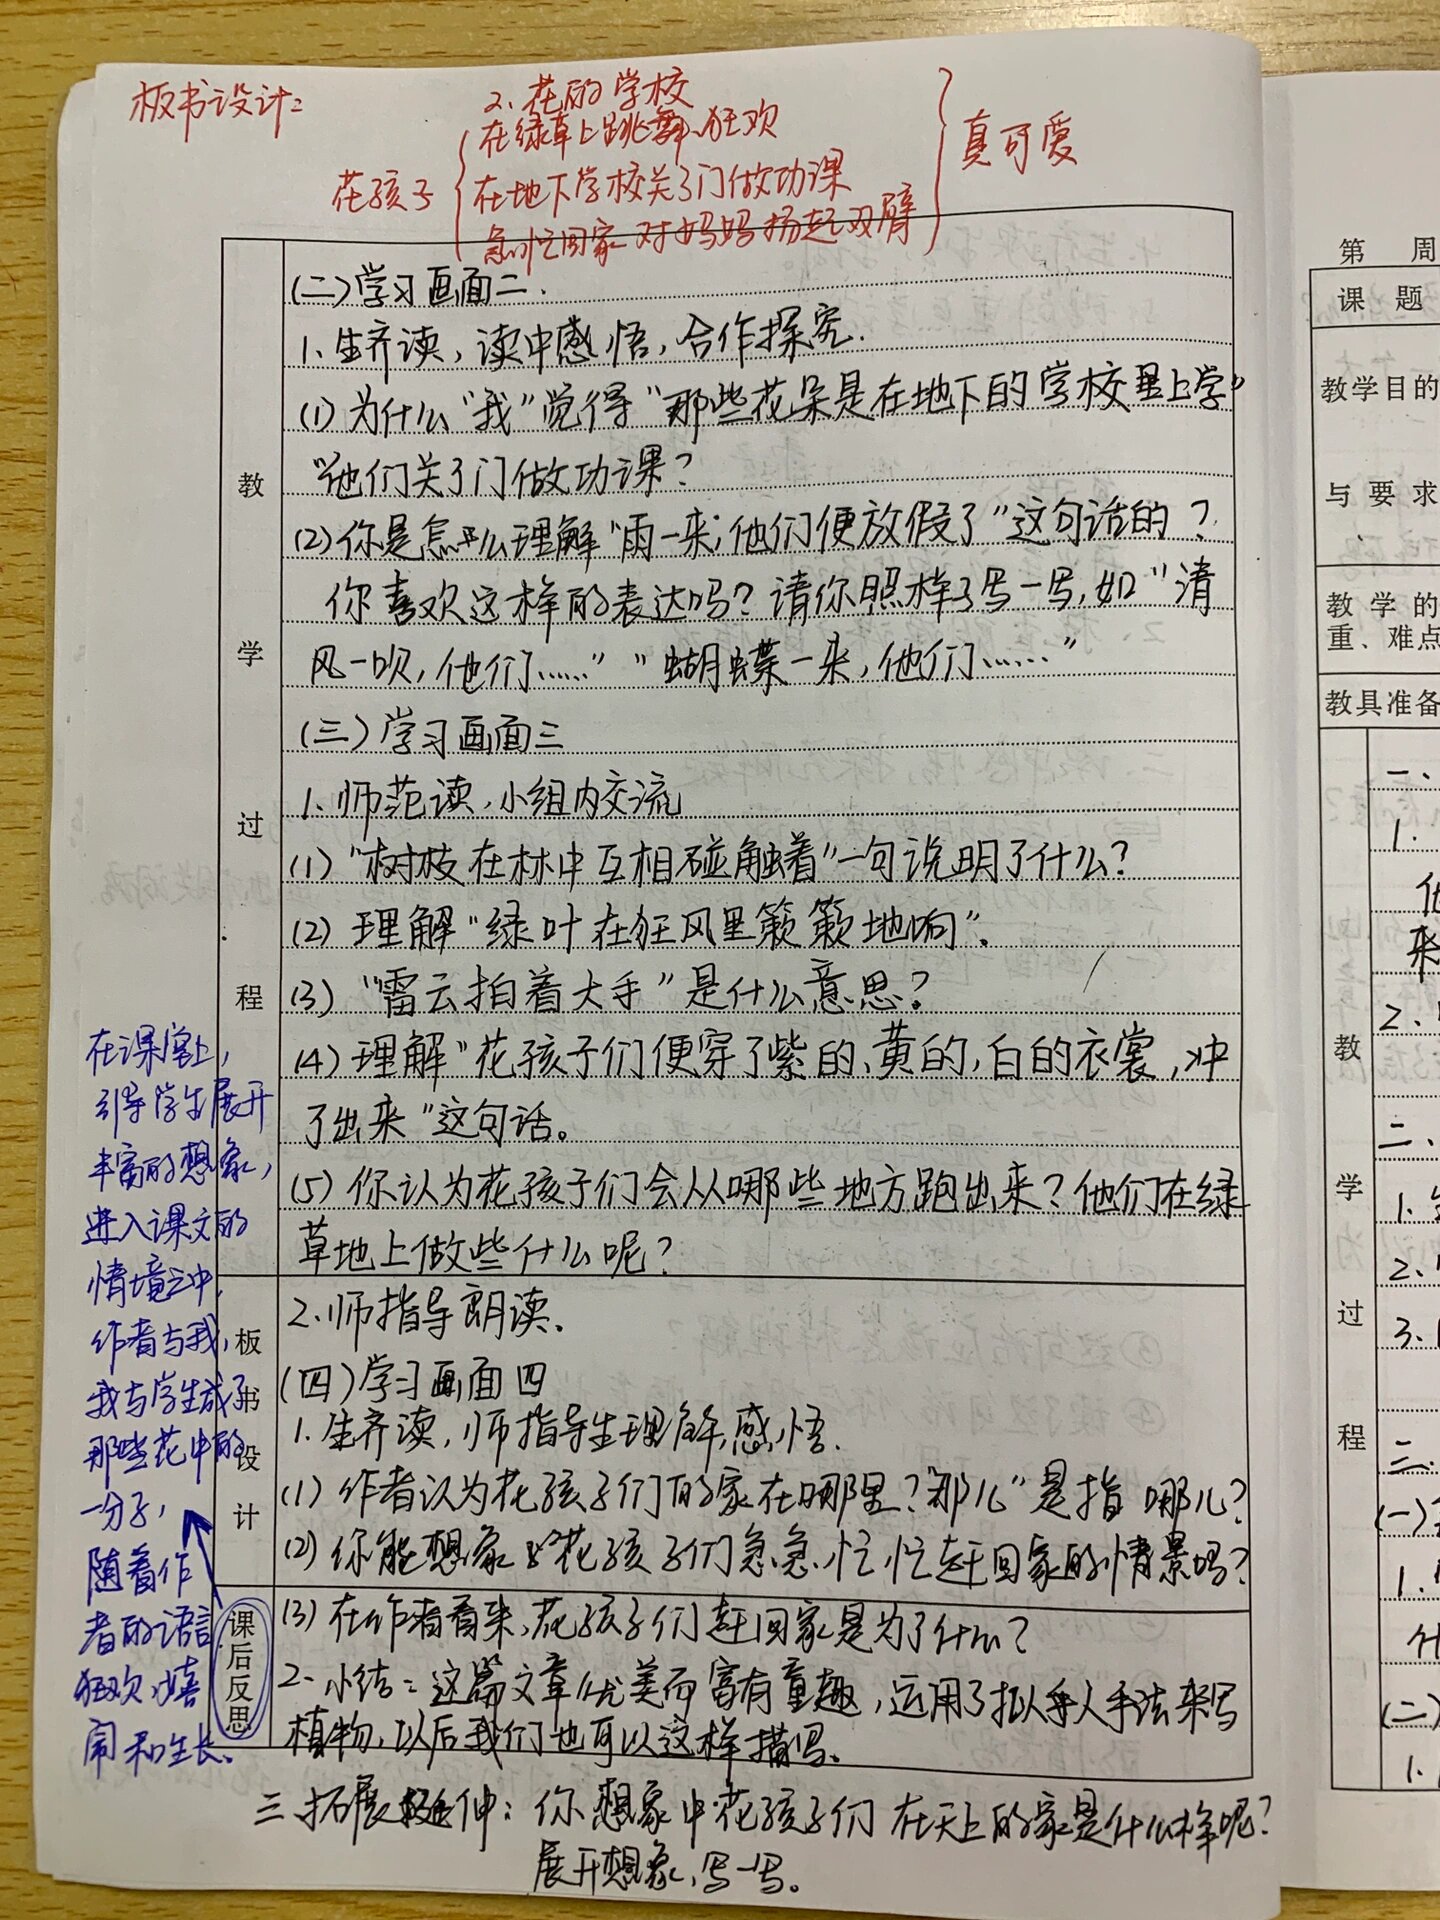 板书设计：
2、花的学校
在绿草上跳舞、狂欢
花孩子
在地下学校关了门做功课
真可爱
急忙回家 对妈妈扬起双臂
(二)学习画面二.
1、生齐读，读中感悟，合作探究.
(1)为什么"我"觉得"那些花朵是在地下的学校里上学"
"他们关了门做功课？
(2)你是怎么理解"雨一来，他们便放假了"这句话的？
你喜欢这样的表达吗？请你照样子写一写，如"清
风一吹，他们……""蝴蝶一来，他们……"
(三)学习画面三
1、师范读，小组内交流
(1)"树枝在林中互相碰触着"一句说明了什么？
(2)理解"绿叶在狂风里簌簌地响"。
(3)"雷云拍着大手"是什么意思？
(4)理解"花孩子们便穿了紫的、黄的，白的衣裳，冲
了出来"这句话。
(5)你认为花孩子们会从哪些地方跑出来？他们在绿
草地上做些什么呢？
2、师指导朗读、
(四)学习画面四
1、生齐读，师指导生理解，感悟.
(1)作者认为花孩子们的家在哪里？"那儿"是指哪儿？
(2)你能想象出花孩子们急急忙忙赶回家的情景吗？
(3)在作者看来，花孩子们赶回家是为了什么？
2、小结：这篇文章优美而富有童趣，运用了拟人手法来写
植物，以后我们也可以这样描写。
三、拓展延伸：你想象中花孩子们在天上的家是什么样呢？
展开想象，写一写。
教
学
过
程
板
书
设
计
课
后
反
思
在课堂上，
引导学生展开
丰富的想象，
进入课文的
情境之中，
作者与我，
我与学生成了
那些花中的
一分子，
随着作
者的语言
狂欢、嬉
闹和生长。
第 周
课 题
教学目的
与 要 求
教 学 的
重、难点
教具准备
一、
1.
来
2.
二、
1.
2.
3.
三.
(一)
1.
(二)
1.
教
学
过
程